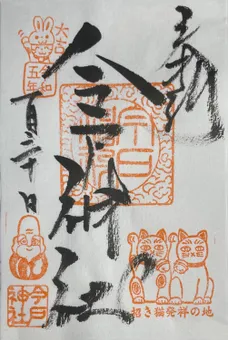 奉拝
今戸神社
令和五年
一月三十日
今戸
神社
招き猫発祥の地